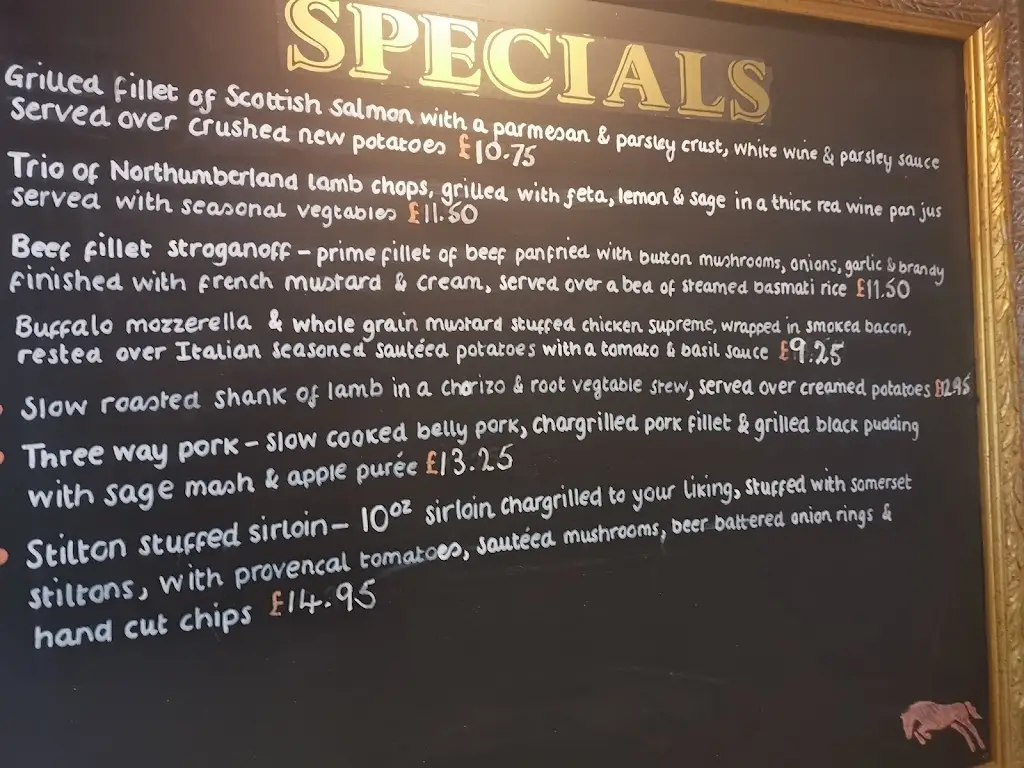 SPECIALS
Grilled fillet of Scottish Salmon with a parmesan & parsley crust, white wine & parsley sauce
Served over crushed new potatoes £10.75
Trio of Northumberland lamb chops, grilled with feta, lemon & sage in a thick red wine pan jus
served with seasonal vegtables £11.50
Beef fillet stroganoff - prime fillet of beef panfried with button mushrooms, onions, garlic & brandy
finished with french mustard & cream, served over a bed of steamed basmati rice £11.50
Buffalo mozzerella & whole grain mustard stuffed chicken supreme, wrapped in smoked bacon,
rested over Italian seasoned sautéed potatoes with a tomato & basil sauce £9.25
Slow roasted shank of lamb in a chorizo & root vegtable stew, served over creamed potatoes £12.95
Three way pork - slow cooked belly pork, chargrilled pork fillet & grilled black pudding
with sage mash & apple purée £13.25
Stilton stuffed sirloin - 10oz sirloin chargrilled to your liking, stuffed with somerset
stiltons, with provencal tomatoes, sautéed mushrooms, beer battered onion rings &
hand cut chips £14.95